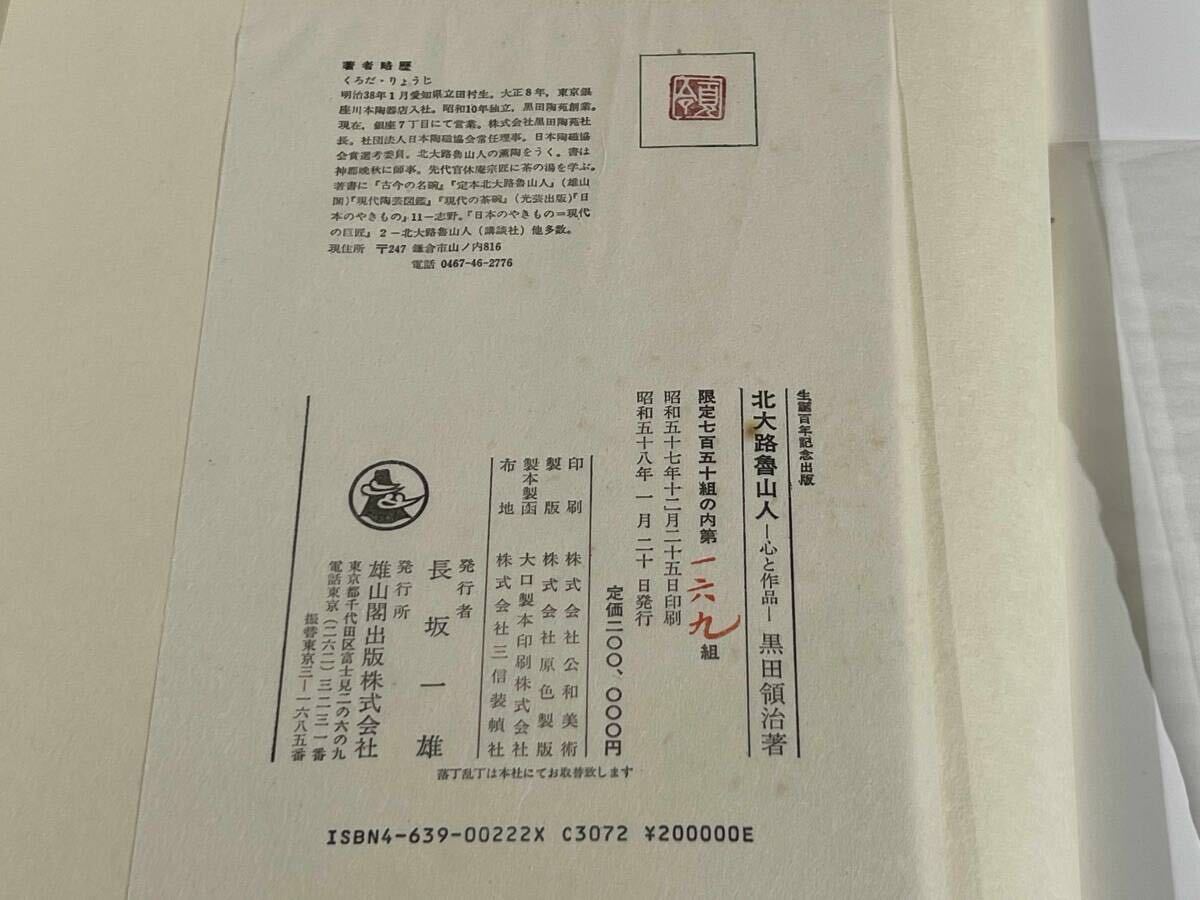 著者略歴
くろだ・りょうじ
明治38年1月愛知県立田村生。大正8年，東京銀
座川本陶器店入社。昭和10年独立，黒田陶苑創業。
現在，銀座7丁目にて営業。株式会社黒田陶苑社
長。社団法人日本陶磁協会常任理事。日本陶磁協
会賞選考委員。北大路魯山人の薫陶をうく。書は
神郡晩秋に師事。先代官休庵宗匠に茶の湯を学ぶ。
著書に『古今の名碗』『定本北大路魯山人』(雄山
閣)『現代陶芸図鑑』『現代の茶碗』(光芸出版)『日
本のやきもの』11－志野。『日本のやきもの＝現代
の巨匠』2－北大路魯山人(講談社)他多数。
現住所 〒247 鎌倉市山ノ内816
電話 0467-46-2776
領
生誕百年記念出版
北大路魯山人―心と作品― 黒田領治著
限定七百五十組の内第一六九組
昭和五十七年十二月二十五日印刷
昭和五十八年 一月 二十 日発行
定価二〇〇、〇〇〇円
印刷 株式会社公和美術
製版 株式会社原色製版
製本製函 大口製本印刷株式会社
布地 株式会社三信装幀社
発行者
長坂一雄
発行所
雄山閣出版株式会社
東京都千代田区富士見二の六の九
電話東京(二六二)三二三一番
振替東京三―一六八五番
落丁乱丁は本社にてお取替致します
ISBN4-639-00222X C3072 ¥200000E